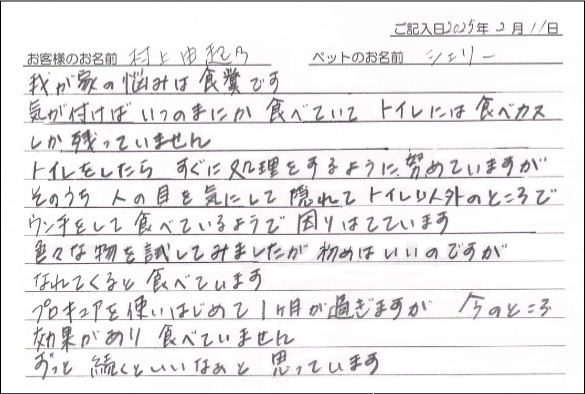 ご記入日2025年2月11日
お客様のお名前 村上由起乃 ペットのお名前 シェリー
我が家の悩みは食糞です
気が付けば いつのまにか 食べていて トイレには 食べカス
しか残っていません
トイレをしたら すぐに処理をするように努めていますが
そのうち 人の目を気にして 隠れて トイレ以外のところで
ウンチをして 食べているようで 困りはてています
色々な物を試してみましたが 初めはいいのですが
なれてくると 食べています
プロキュアを使いはじめて 1ヶ月が過ぎますが 今のところ
効果があり 食べていません
ずっと 続くといいなぁと 思っています